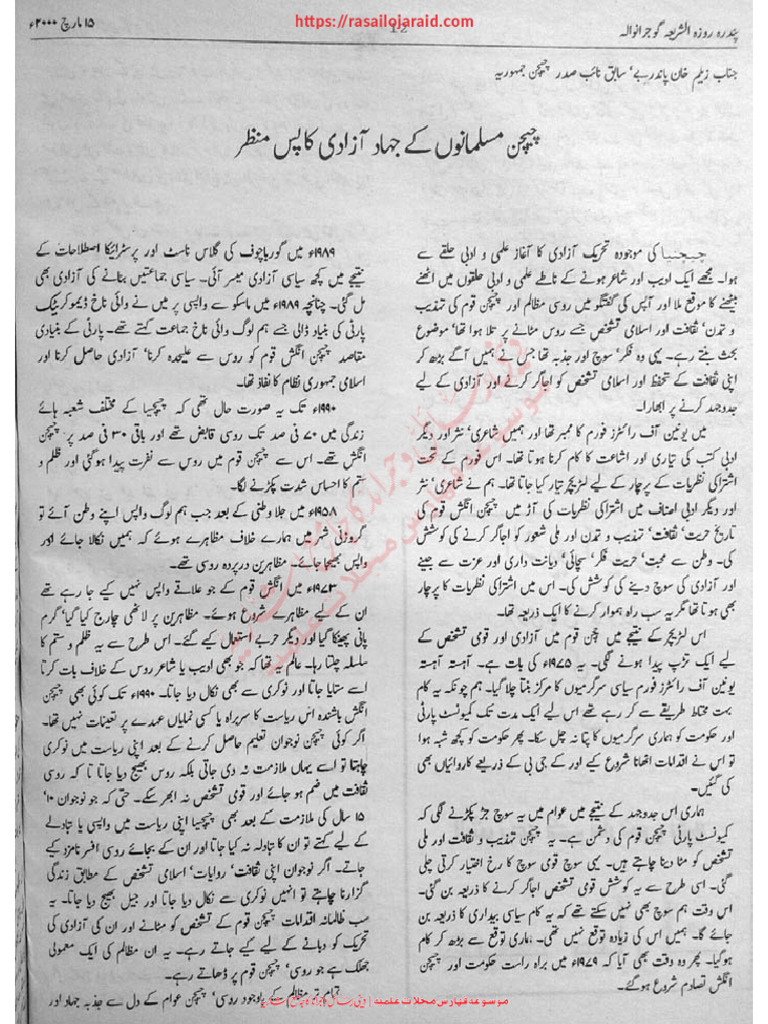 https://rasailojaraid.com
پندرہ روزہ الشریعہ گوجرانوالہ
12
۱۵ مارچ ۲۰۰۰ء
جناب زیلم خان پاندربے' سابق نائب صدر چیچن جمہوریہ
چیچن مسلمانوں کے جہاد آزادی کا پس منظر
چیچنیا کی موجودہ تحریک آزادی کا آغاز علمی و ادبی حلقے سے
ہوا۔ مجھے ایک ادیب اور شاعر ہونے کے ناطے علمی و ادبی حلقوں میں اٹھنے
بیٹھنے کا موقع ملا اور آپس کی گفتگو میں روسی مظالم اور چیچن قوم کی تہذیب
و تمدن' ثقافت اور اسلامی تشخص جسے روس مٹانے پر تلا ہوا تھا' موضوع
بحث بنتے رہے۔ یہی وہ فکر' سوچ اور جذبہ تھا جس نے ہمیں آگے بڑھ کر
اپنی ثقافت کے تحفظ اور اسلامی تشخص کو اجاگر کرنے اور آزادی کے لیے
جدوجہد کرنے پر ابھارا۔
میں یونین آف رائٹرز فورم کا ممبر تھا اور ہمیں شاعری' نثر اور دیگر
ادبی کتب کی تیاری اور اشاعت کا کام کرنا ہوتا تھا۔ اس فورم کے تحت
اشتراکی نظریات کے پرچار کے لیے لٹریچر تیار کیا جاتا تھا۔ ہم نے شاعری' نثر
اور دیگر ادبی اصناف میں اشتراکی نظریات کی آڑ میں چیچن انگش قوم کی
تاریخ حریت' ثقافت' تہذیب و تمدن اور ملی شعور کو اجاگر کرنے کی کوشش
کی۔ وطن سے محبت' حریت فکر' سچائی' دیانت داری اور عزت سے جینے
اور آزادی کی سوچ دینے کی کوشش کی۔ اس میں اشتراکی نظریات کا پرچار
بھی ہوتا تھا مگر یہ سب راہ ہموار کرنے کا ایک ذریعہ تھا۔
اس لٹریچر کے نتیجے میں چیچن قوم میں آزادی اور قومی تشخص کے
لیے ایک تڑپ پیدا ہونے لگی۔ یہ ۱۹۷۵ء کی بات ہے۔ آہستہ آہستہ
یونین آف رائٹرز فورم سیاسی سرگرمیوں کا مرکز بنتا چلا گیا۔ ہم چونکہ یہ کام
بہت محتاط طریقے سے کر رہے تھے اس لیے ایک مدت تک کمیونسٹ پارٹی
اور حکومت کو ہماری سرگرمیوں کا پتا نہ چل سکا۔ پھر حکومت کو کچھ شبہ ہوا
تو اس نے اقدامات اٹھانا شروع کیے اور کے جی بی کے ذریعے کارروائیاں بھی
کی گئیں۔
ہماری اس جدوجہد کے نتیجے میں عوام میں یہ سوچ جڑ پکڑنے لگی کہ
کمیونسٹ پارٹی چیچن قوم کی دشمن ہے۔ یہ چیچن تہذیب و ثقافت اور ملی
تشخص کو مٹا دینا چاہتے ہیں۔ یہی سوچ قومی سوچ کا رخ اختیار کرتی چلی
گئی۔ اسی طرح سے یہ کوشش قومی تشخص اجاگر کرنے کا ذریعہ بن گئی۔
اس وقت ہم سوچ بھی نہیں سکتے تھے کہ یہ کام سیاسی بیداری کا ذریعہ بن
جائے گا۔ ہمیں اس کی زیادہ توقع نہیں تھی۔ ہماری توقع سے بڑھ کر کام
ہو گیا۔ پھر وہ وقت بھی آیا کہ ۱۹۷۹ء میں براہ راست حکومت اور چیچن
انگش تصادم شروع ہو گئے۔
۱۹۸۹ء میں گورباچوف کی گلاس ناسٹ اور پرسٹرائیکا اصطلاحات کے
نتیجے میں کچھ سیاسی آزادی میسر آئی۔ سیاسی جماعتیں بنانے کی آزادی بھی
مل گئی۔ چنانچہ ۱۹۸۹ء میں ماسکو سے واپسی پر میں نے وائی ناخ ڈیموکریٹک
پارٹی کی بنیاد ڈالی جسے ہم لوگ وائی ناخ جماعت کہتے تھے۔ پارٹی کے بنیادی
مقاصد چیچن انگش قوم کو روس سے علیحدہ کرنا' آزادی حاصل کرنا اور
اسلامی جمہوری نظام کا نفاذ تھا۔
۱۹۹۰ء تک یہ صورت حال تھی کہ چیچنیا کے مختلف شعبہ ہائے
زندگی میں ۷۰ فی صد تک روسی قابض تھے اور باقی ۳۰ فی صد پر چیچن
انگش تھے۔ اس سے چیچن قوم میں روس سے نفرت پیدا ہو گئی اور ظلم و
ستم کا احساس شدت پکڑنے لگا۔
۱۹۵۸ء میں جلاوطنی کے بعد جب ہم لوگ واپس اپنے وطن آئے تو
گروزنی شہر میں ہمارے خلاف مظاہرے ہوئے کہ ہمیں نکالا جائے اور
واپس بھیجا جائے۔ مظاہرین درپردہ روسی تھے۔
۱۹۷۳ء میں انگش قوم کے جو علاقے واپس نہیں کیے جا رہے تھے
ان کے لیے مظاہرے شروع ہوئے۔ مظاہرین پر لاٹھی چارج کیا گیا' گرم
پانی پھینکا گیا اور دیگر حربے استعمال کیے گئے۔ اس طرح سے یہ ظلم و ستم کا
سلسلہ چلتا رہا۔ عالم یہ تھا کہ جو بھی ادیب یا شاعر روس کے خلاف بات کرتا
اسے ستایا جاتا اور نوکری سے بھی نکال دیا جاتا۔ ۱۹۹۰ء تک کوئی بھی چیچن
انگش باشندہ اس ریاست کا سربراہ یا کسی نمایاں عہدے پر تعینات نہیں تھا۔
اگر کوئی چیچن نوجوان تعلیم حاصل کرنے کے بعد اپنی ریاست میں نوکری
چاہتا تو اسے یہاں ملازمت نہ دی جاتی بلکہ روس بھیج دیا جاتا تا کہ روسی
ثقافت میں ضم ہو جائے اور قومی تشخص نہ ابھر سکے۔ حتی کہ جو نوجوان ۱۰'
۱۵ سال کی ملازمت کے بعد بھی چیچنیا اپنی ریاست میں واپسی یا تبادلے
کے لیے کہتے تو ان کا تبادلہ نہ کیا جاتا اور ان کے بجائے روسی افسر نامزد کیے
جاتے۔ اگر نوجوان اپنی ثقافت' روایات' اسلامی تشخص کے مطابق زندگی
گزارنا چاہتے تو انہیں نوکری سے نکال دیا جاتا اور جیل بھیج دیا جاتا۔ یہ
سب ظالمانہ اقدامات چیچن قوم کے تشخص کو مٹانے اور ان کی آزادی کی
تحریک کو دبانے کے لیے کیے جاتے رہے۔ یہ ان مظالم کی ایک معمولی
جھلک ہے جو روسی' چیچن قوم پر ڈھاتے رہے۔
تمام تر مظالم کے باوجود روسی' چیچن عوام کے دل سے جذبہ جہاد اور
موسوعة فهارس مجلات علمية | دینی رسائل وجرائد کا